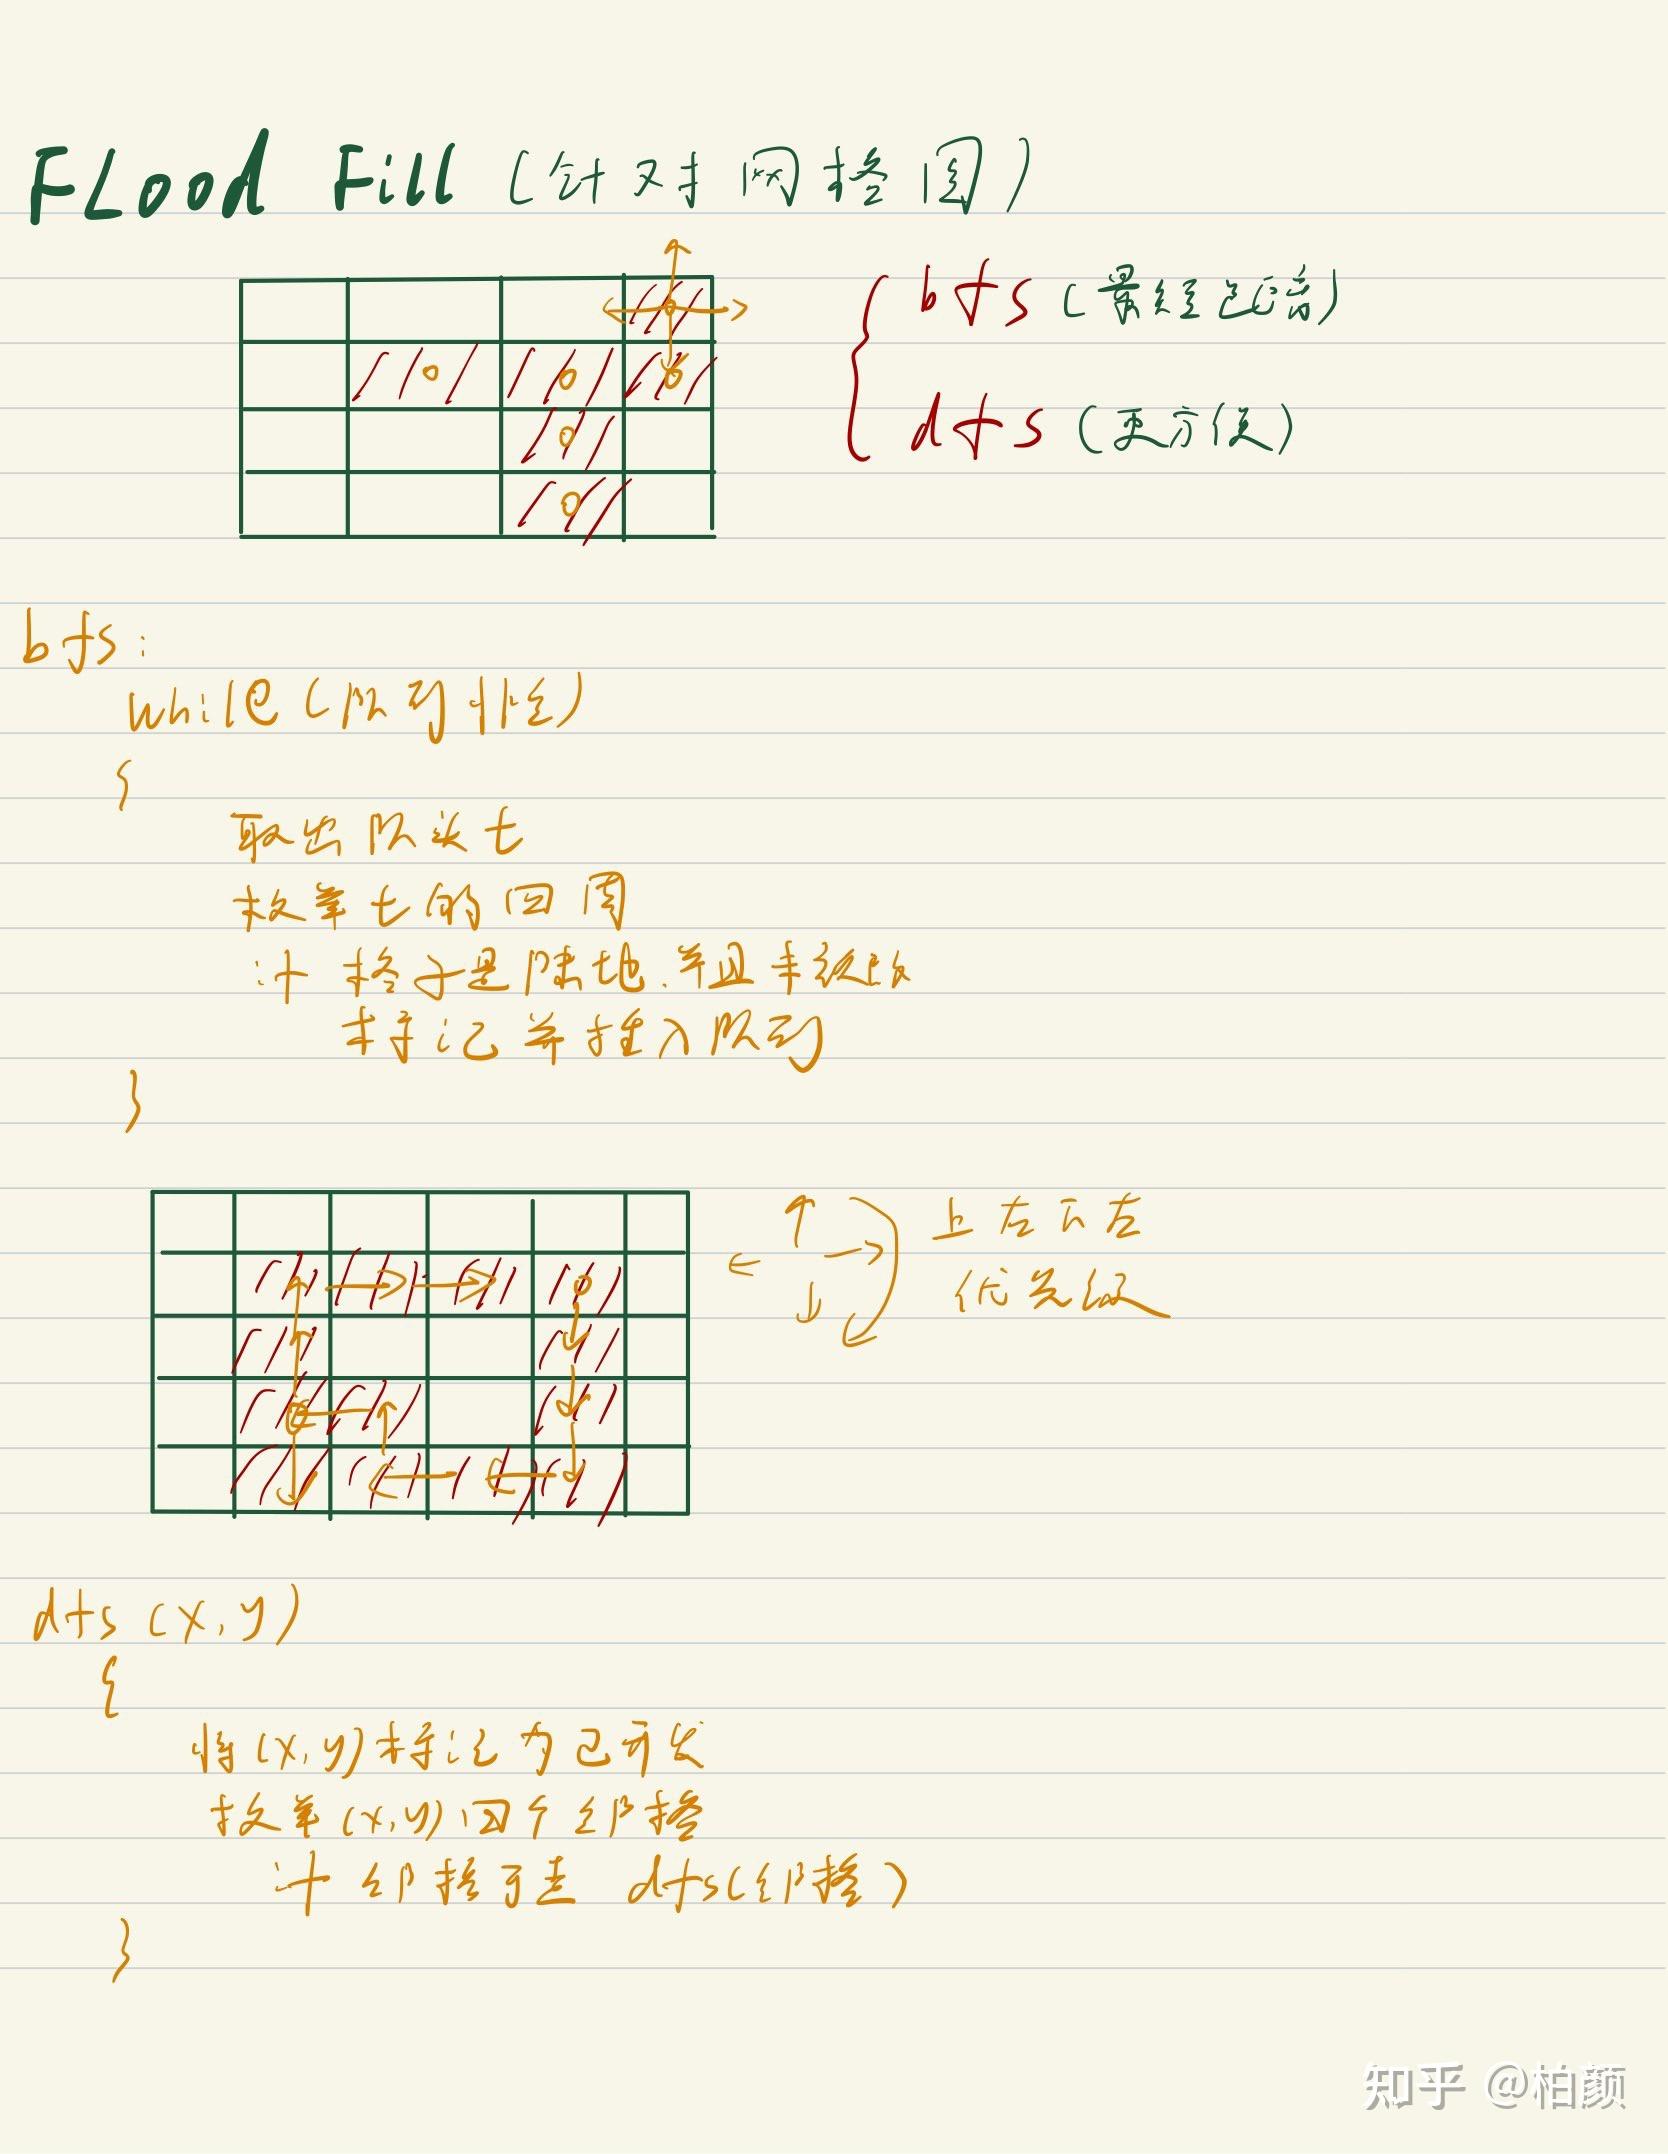 FLood Fill (针对网格图)
bfs (最短距离)
dfs (更方便)
bfs:
while (队列非空)
{
取出队头t
枚举t的四周
if 格子是陆地,并且未被改
标记并插入队列
}
上右下左
优先级
dfs (x,y)
{
将(x,y)标记为已开发
枚举(x,y)四个邻格
if 邻格可走 dfs(邻格)
}
知乎 @柏颜